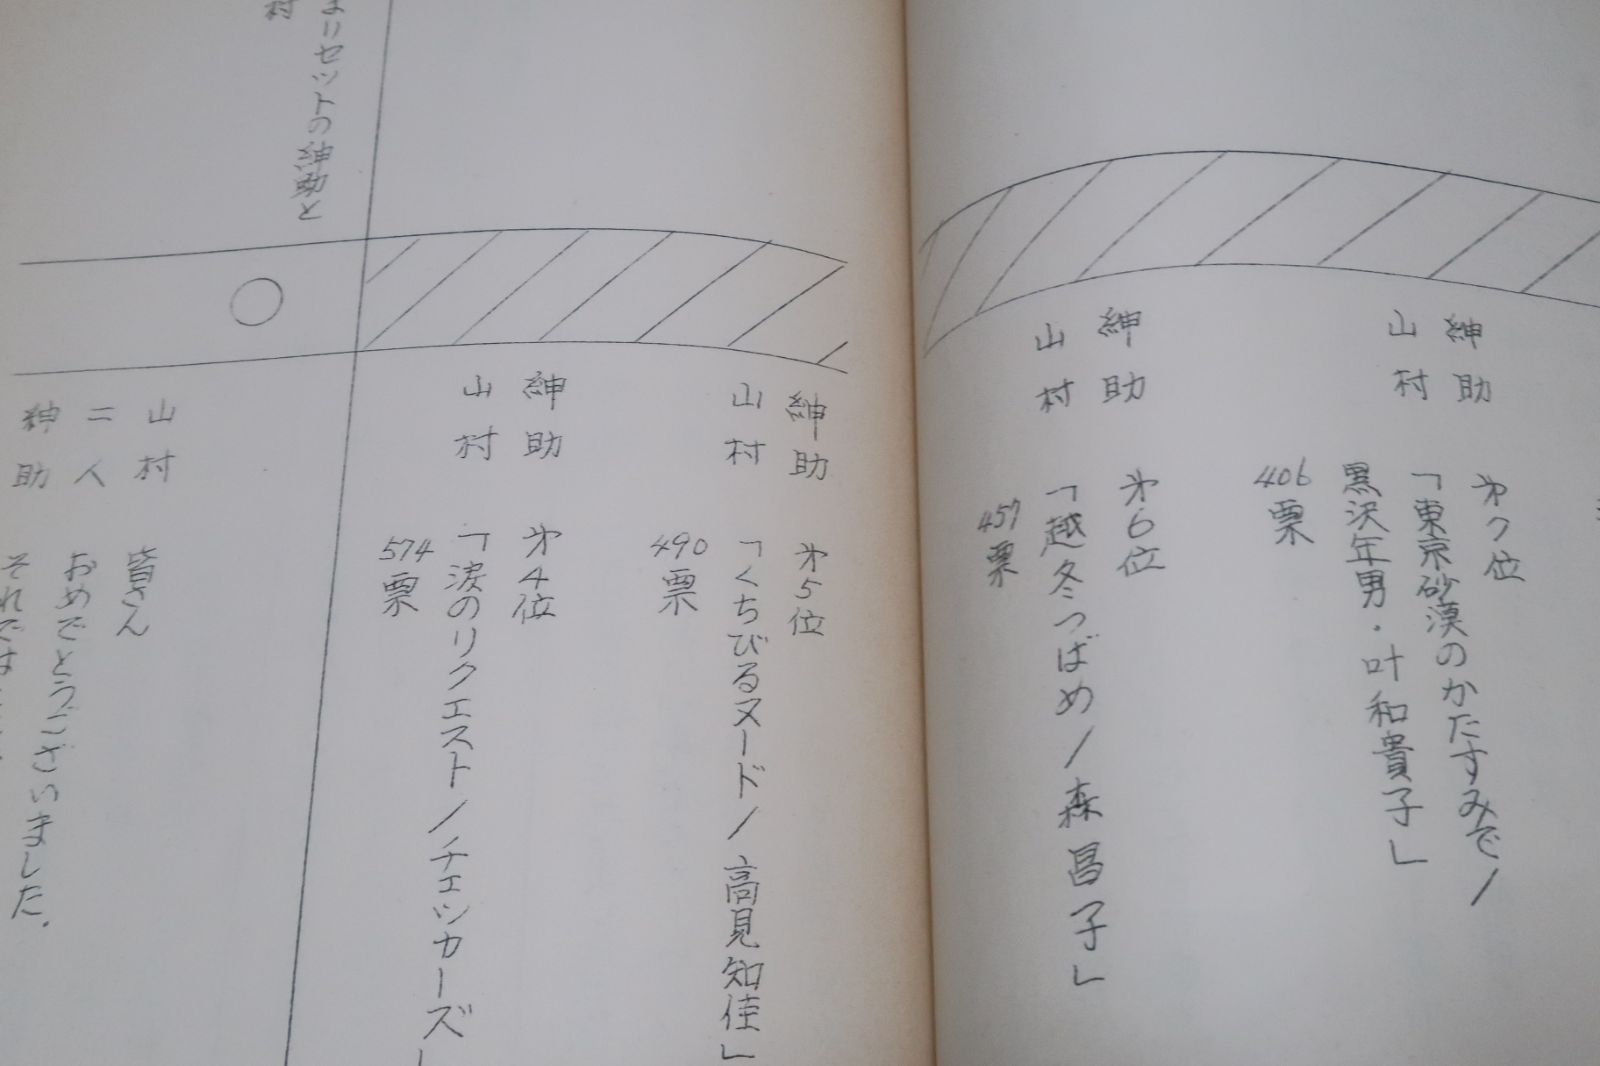 紳助
山村
第7位
「東京砂漠のかたすみで/
黒沢年男・叶和貴子」
406票
紳助
山村
第6位
「越冬つばめ/森昌子」
457票
紳助
山村
第5位
「くちびるヌード/高見知佳」
490票
紳助
山村
第4位
「涙のリクエスト/チェッカーズ」
574票
りセットの紳助と
村
山村
二人
紳助
皆さん
おめでとうございました.
それでは